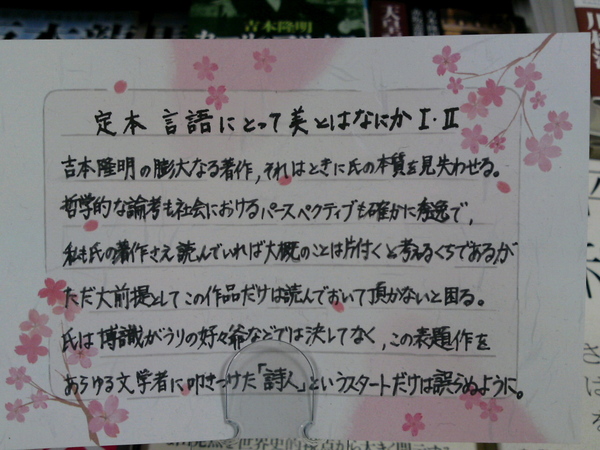 吉本隆明
定本 言語にとって美とはなにかⅠ・Ⅱ
吉本隆明の膨大なる著作,それはときに氏の本質を見失わせる。
哲学的な論考も社会におけるパースペクティブも確かに秀逸で,
私も氏の著作さえ読んでいれば大概のことは片付くと考えるくちであるが
ただ大前提としてこの作品だけは読んでおいて頂かないと困る。
氏は博識がうりの好々爺などでは決してなく,この表題作を
あらゆる文学者に叩きつけた「詩人」というスタートだけは誤らぬように。